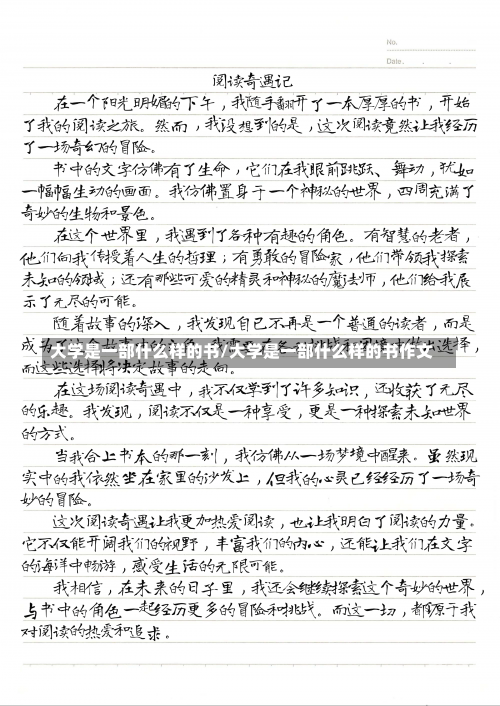 No.
Date . . .
阅读奇遇记
在一个阳光明媚的下午，我随手翻开了一本厚厚的书，开始
了我的阅读之旅。然而，我没想到的是，这次阅读竟然让我经历
了一场奇幻的冒险。
书中的文字仿佛有了生命，它们在我眼前跳跃、舞动，犹如
一幅幅生动的画面。我仿佛置身于一个神秘的世界，四周充满了
奇妙的生物和景色。
在这个世界里，我遇到了各种有趣的角色。有智慧的老者，
他们向我传授着人生的哲理；有勇敢的冒险家，他们带领我探索
未知的领域；还有那些可爱的精灵和神秘的魔法师，他们给我展
示了无尽的可能。
随着故事的深入，我发现自己不再是一个普通的读者，而是
成
选择，
大学是一部什么样的书/大学是一部什么样的书作文
而这些选择将决定故事的走向。
在这场阅读奇遇中，我不仅学到了许多知识，还收获了无尽
的乐趣。我发现，阅读不仅是一种享受，更是一种探索未知世界
的方式。
当我合上书本的那一刻，我仿佛从一场梦境中醒来。虽然现
实中的我依然坐在家里的沙发上，但我的心灵已经经历了一场奇
妙的冒险。
这次阅读奇遇让我更加热爱阅读，也让我明白了阅读的力量。
它不仅能开阔我们的视野，丰富我们的内心，还能让我们在文字
的海洋中畅游，感受生活的无限可能。
我相信，在未来的日子里，我还会继续探索这个奇妙的世界，
与书中的角色一起经历更多的冒险和挑战。而这一切，都源于我
对阅读的热爱和追求。